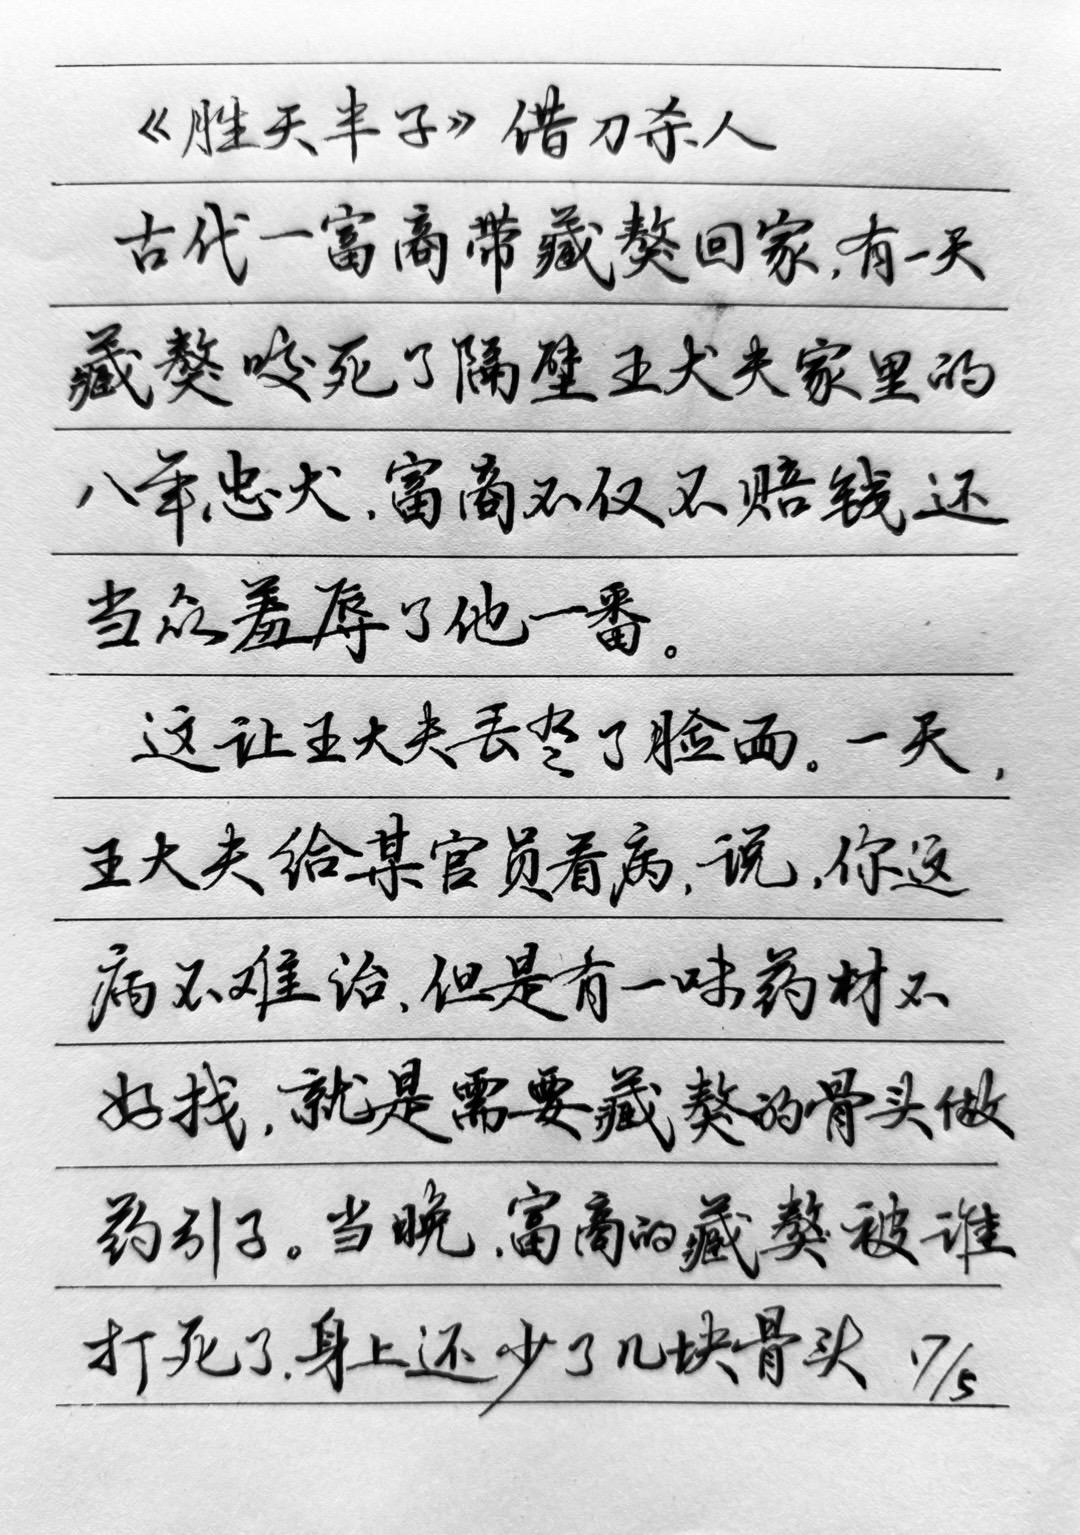 《胜天半子》借刀杀人
古代一富商带藏獒回家,有一天
藏獒咬死了隔壁王犬夫家里的
八年忠犬,富商不仅不赔钱还
当众羞辱了他一番。
这让王大夫丢尽了脸面。一天,
王大夫给某官员看病,说,你这
病不难治,但是有一味药材不
好找,就是需要藏獒的骨头做
药引子。当晚,富商的藏獒被谁
打死了,身上还少了几块骨头 7/5